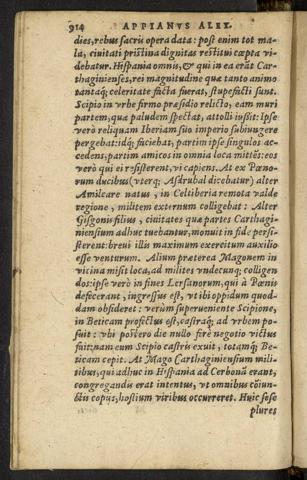 914 APPIANVS ALEX.
dies, rebus sacris opera data: post enim tot ma-
la, ciuitati pristina dignitas restitui cœpta vi-
debatur. Hispania omnis, & qui in ea erãt Car-
thaginienses, rei magnitudine quæ tanto animo
tantaq; celeritate facta fuerat, stupefacti sunt.
Scipio in vrbe firmo præsidio relicto, eam muri
partem, quæ paludem spectat, attolli iußit: Ipse
verò reliquam Iberiam sũo imperio subiungere
pergebat: idq; faciebat, partim ipse singulos ac-
cedens: partim amicos in omnia loca mittẽs: eos
verò qui ei resisterent, vi capiens. At ex Pœno-
rum ducibus (vterq; Asdrubal dicebatur) alter
Amilcare natus, in Celtiberia remota valde
regione, militem externum colligebat: Alter
Gisgonis filius, ciuitates quæ partes Carthagi-
niensium adhuc tuebantur, monuit in fide persi-
sterent: breui illis maximum exercitum auxilio
esse venturum. Alium præterea Magonem in
vicina misit loca, ad milites vndecunq; colligen
dos: ipse verò in fines Lersanorum, qui à Pœnis
defecerant, ingressus est, vt ibi oppidum quod-
dam obsideret: verùm superueniente Scipione,
in Beticam profectus est, castraq; ad vrbem po-
suit: vbi postero die nullo ferè negotio victus
fuit: nam eum Scipio castris exuit, totamq; Be-
ticam cepit. At Mago Carthaginiensium mili-
tibus, qui adhuc in Hispania ad Cerbonẽ erant,
congregandis erat intentus, vt omnibus cõiun-
ctis copijs, hostium viribus occurreret. Huic sese
plures